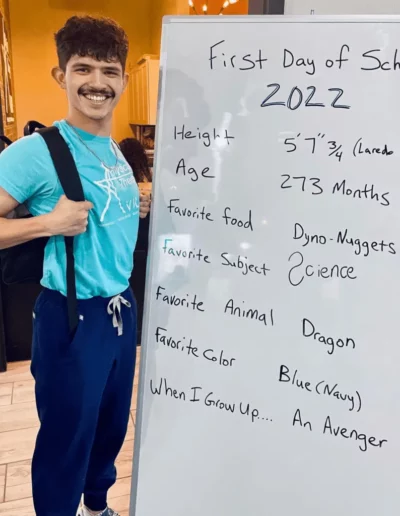 First Day of Sch
2022
Height 5'7" 3/4 (Laredo
Age 273 Months
Favorite food Dyno-Nuggets
Favorite Subject Science
Favorite Animal Dragon
Favorite Color Blue (Navy)
When I Grow Up.... An Avenger